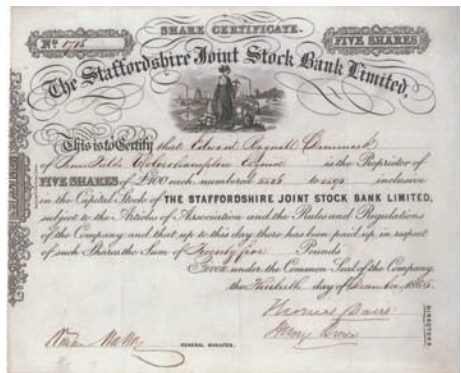 SHARE CERTIFICATE.
Nº 1715
FIVE SHARES
The Staffordshire Joint Stock Bank Limited,
This is to Certify that Edward Bagnall Dimmack
of Wolverhampton is the Proprietor of
FIVE SHARES of £100 each numbered to inclusive
in the Capital Stock of THE STAFFORDSHIRE JOINT STOCK BANK LIMITED,
subject to the Articles of Association and the Rules and Regulations
of the Company and that up to this day there has been paid up in respect
of such Shares the Sum of Twenty five Pounds
Given under the Common Seal of the Company
the Thirtieth day of December, 186
Thomas Davis
DIRECTORS
GENERAL MANAGER.